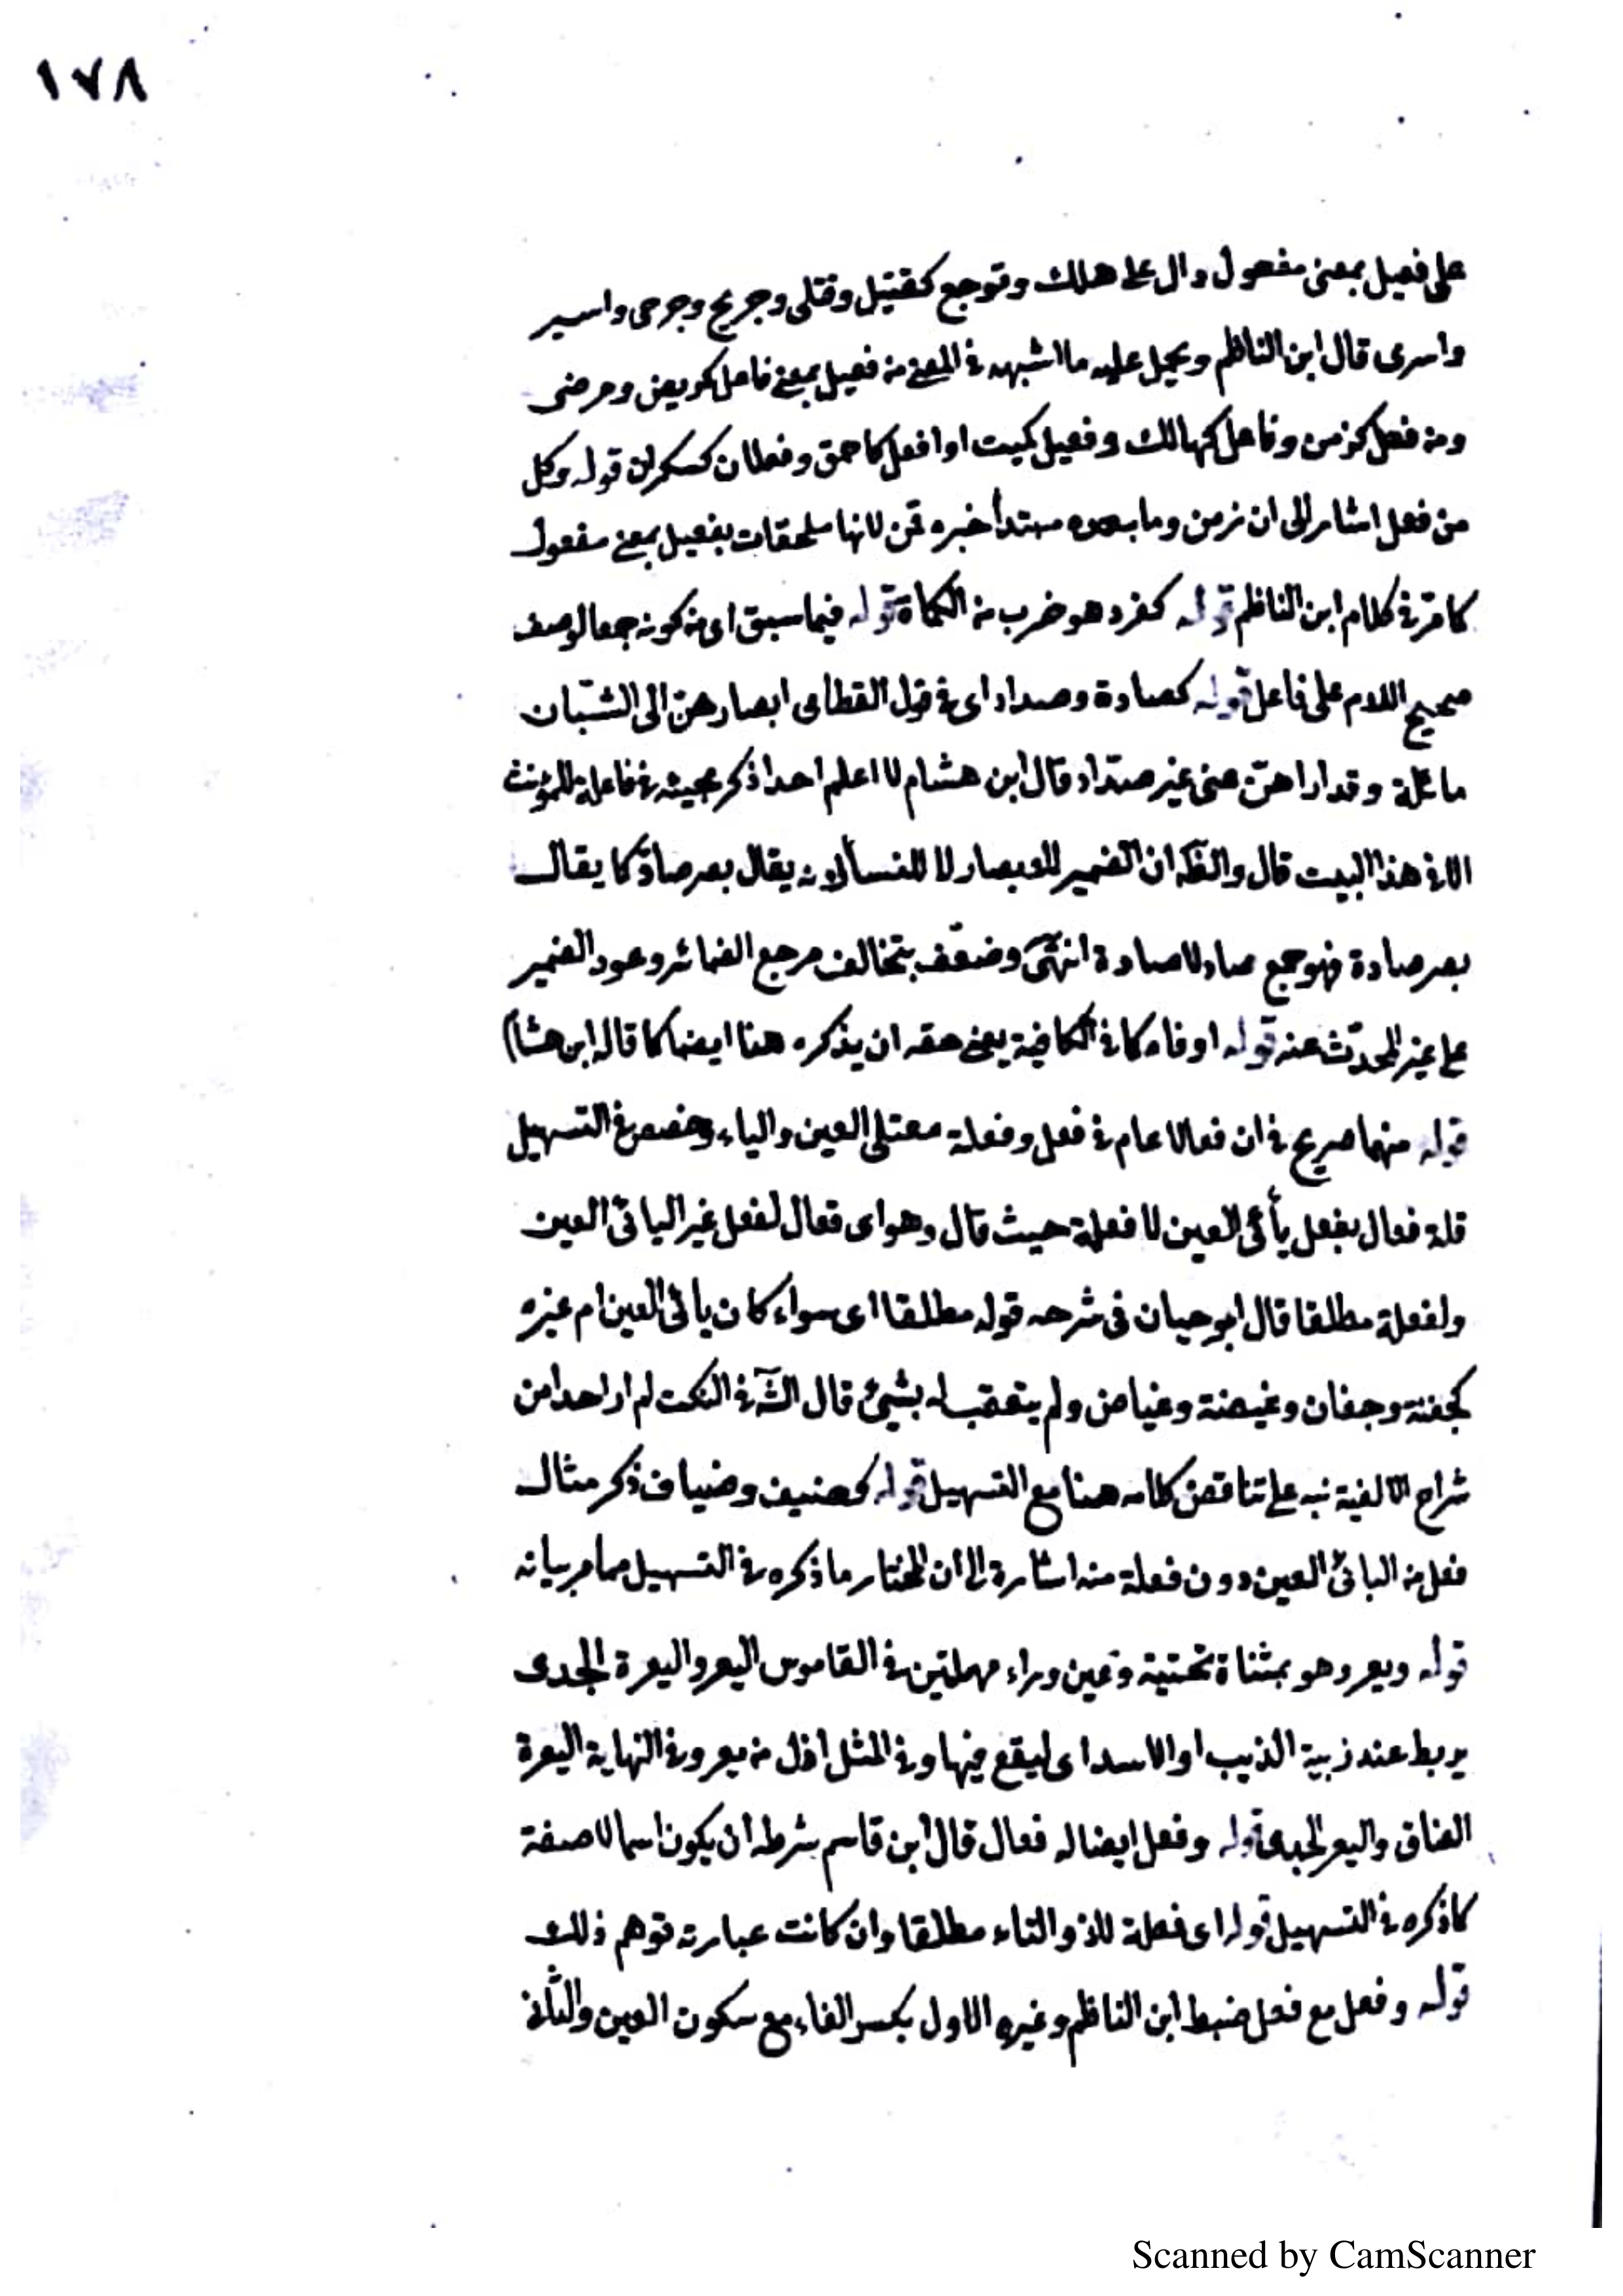 ١٧٨
على فعيل بمعنى مفعول دال على هلك وتوجع كقتيل وقتلى وجريح وجرحى واسير
واسرى قال ابن الناظم ويحمل عليه ما اشبهه في المعنى من فعيل بمعنى فاعل كمريض ومرضى
ومن فعل كزمن وفاعل كهالك وفعيل كميت او افعل كاحمق وفعلان كسكران قوله وكل
من فعل اشار الى ان زمن وما بعده مبتدأ خبره قمن لانها ملحقات بفعيل بمعنى مفعول
كما مر في كلام ابن الناظم قوله كغرد هو ضرب من الكمأة قوله فيما سبق اى من كونه جمعا لوصف
صحيح اللام على فاعل قوله كصادة وصداد اى في قول القطامى ابصارهن الى الشبّان
مائلة وقد اراهنّ عنى غير صدّاد قال ابن هشام لا اعلم احدا ذكر مجيئه في فاعلة المؤنث
الا في هذا البيت قال والظه ان الضمير للابصار لا للنسأ لانه يقال بصر صادّ كما يقال
بصر صادة فهو جمع صاد لا صادة انتهى وضعّف بتخالف مرجع الضمائر وعود الضمير
على غير المحدّث عنه قوله او فاء كما في الكافية يعنى حقه ان يذكره هنا ايضا كما قاله ابن هشام
قوله منهما صريح في ان فعالا عام في فعل وفعلة معتلى العين والياء وخصص في التسهيل
قلة فعال بفعل يأئى العين لا فعلة حيث قال وهو اى فعال لفعل غير اليائىّ العين
ولفعلة مطلقا قال ابو حيان فى شرحه قوله مطلقا اى سواء كان يائى العين ام غيره
كجفنة وجفان وغيضة وغياض ولم يتعقب له بشيئ قال الشّ في النكت لم ار احدا من
شراح الالفية نبه على تناقض كلامه هنا مع التسهيل قوله كضيف وضياف ذكر مثال
فعل من اليائىّ العين دون فعلة منه اشارة الى ان المختار ما ذكره في التسهيل مما مر بيانه
قوله ويعر وهو بمثناة تحتية وعين وراء مهملتين في القاموس اليعر واليعرة الجدى
يربط عند زبية الذيب او الاسد اى ليقع فيها وفي المثل اذل من يعر وفي النهاية اليعرة
العناق واليعر الجدى قوله وفعل ايضا له فعال قال ابن قاسم شرطه ان يكون اسما لا صفة
كما ذكره في التسهيل قوله اى فعلة للذو التاء مطلقا وان كانت عبارته توهم ذلك
قوله وفعل مع فعل ضبط ابن الناظم وغيره الاول بكسر الفاء مع سكون العين والثانى
Scanned by CamScanner